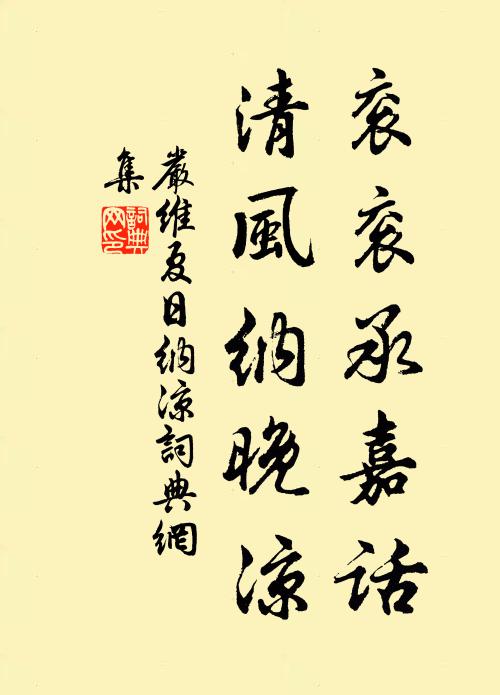 衮衮承嘉话
清風納晚涼
嚴維夏日納涼詞典網
集
詞典网印